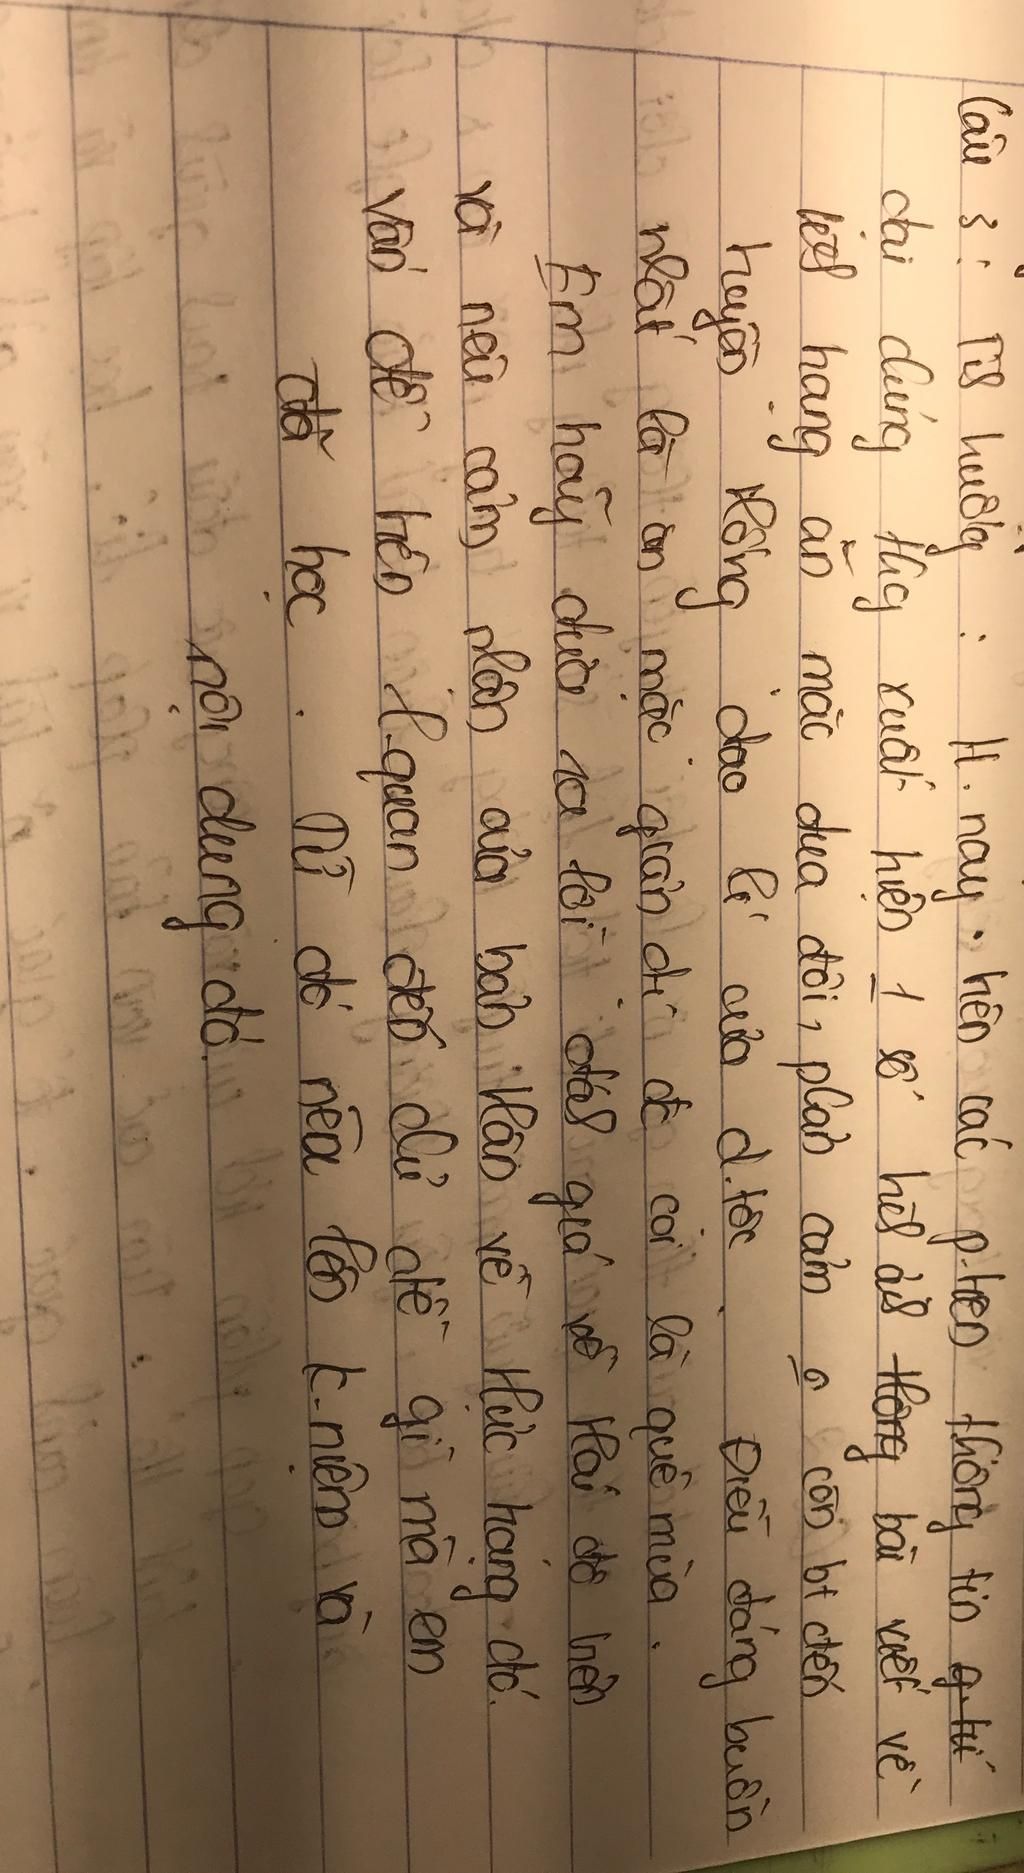 Câu 3: Tình huống : H.nay trên các p.tiện thông tin
đại chúng thg xuất hiện 1 số h/ả những bài viết về
cách hàng ăn mặc đua đòi, phản cảm o còn bt đến
truyền thống đạo lí của d.tộc. Điều đáng buồn
nhất là ăn mặc giản dị đc coi là quê mùa.
Em hãy đưa ra lời đánh giá về thái độ trên
và nêu cảm nhận của bản thân về thực trạng đó.
Vấn đề trên l.quan đến chủ đề gì mà em
đã học. Từ đó nêu lên k.niệm và
nội dung đó.